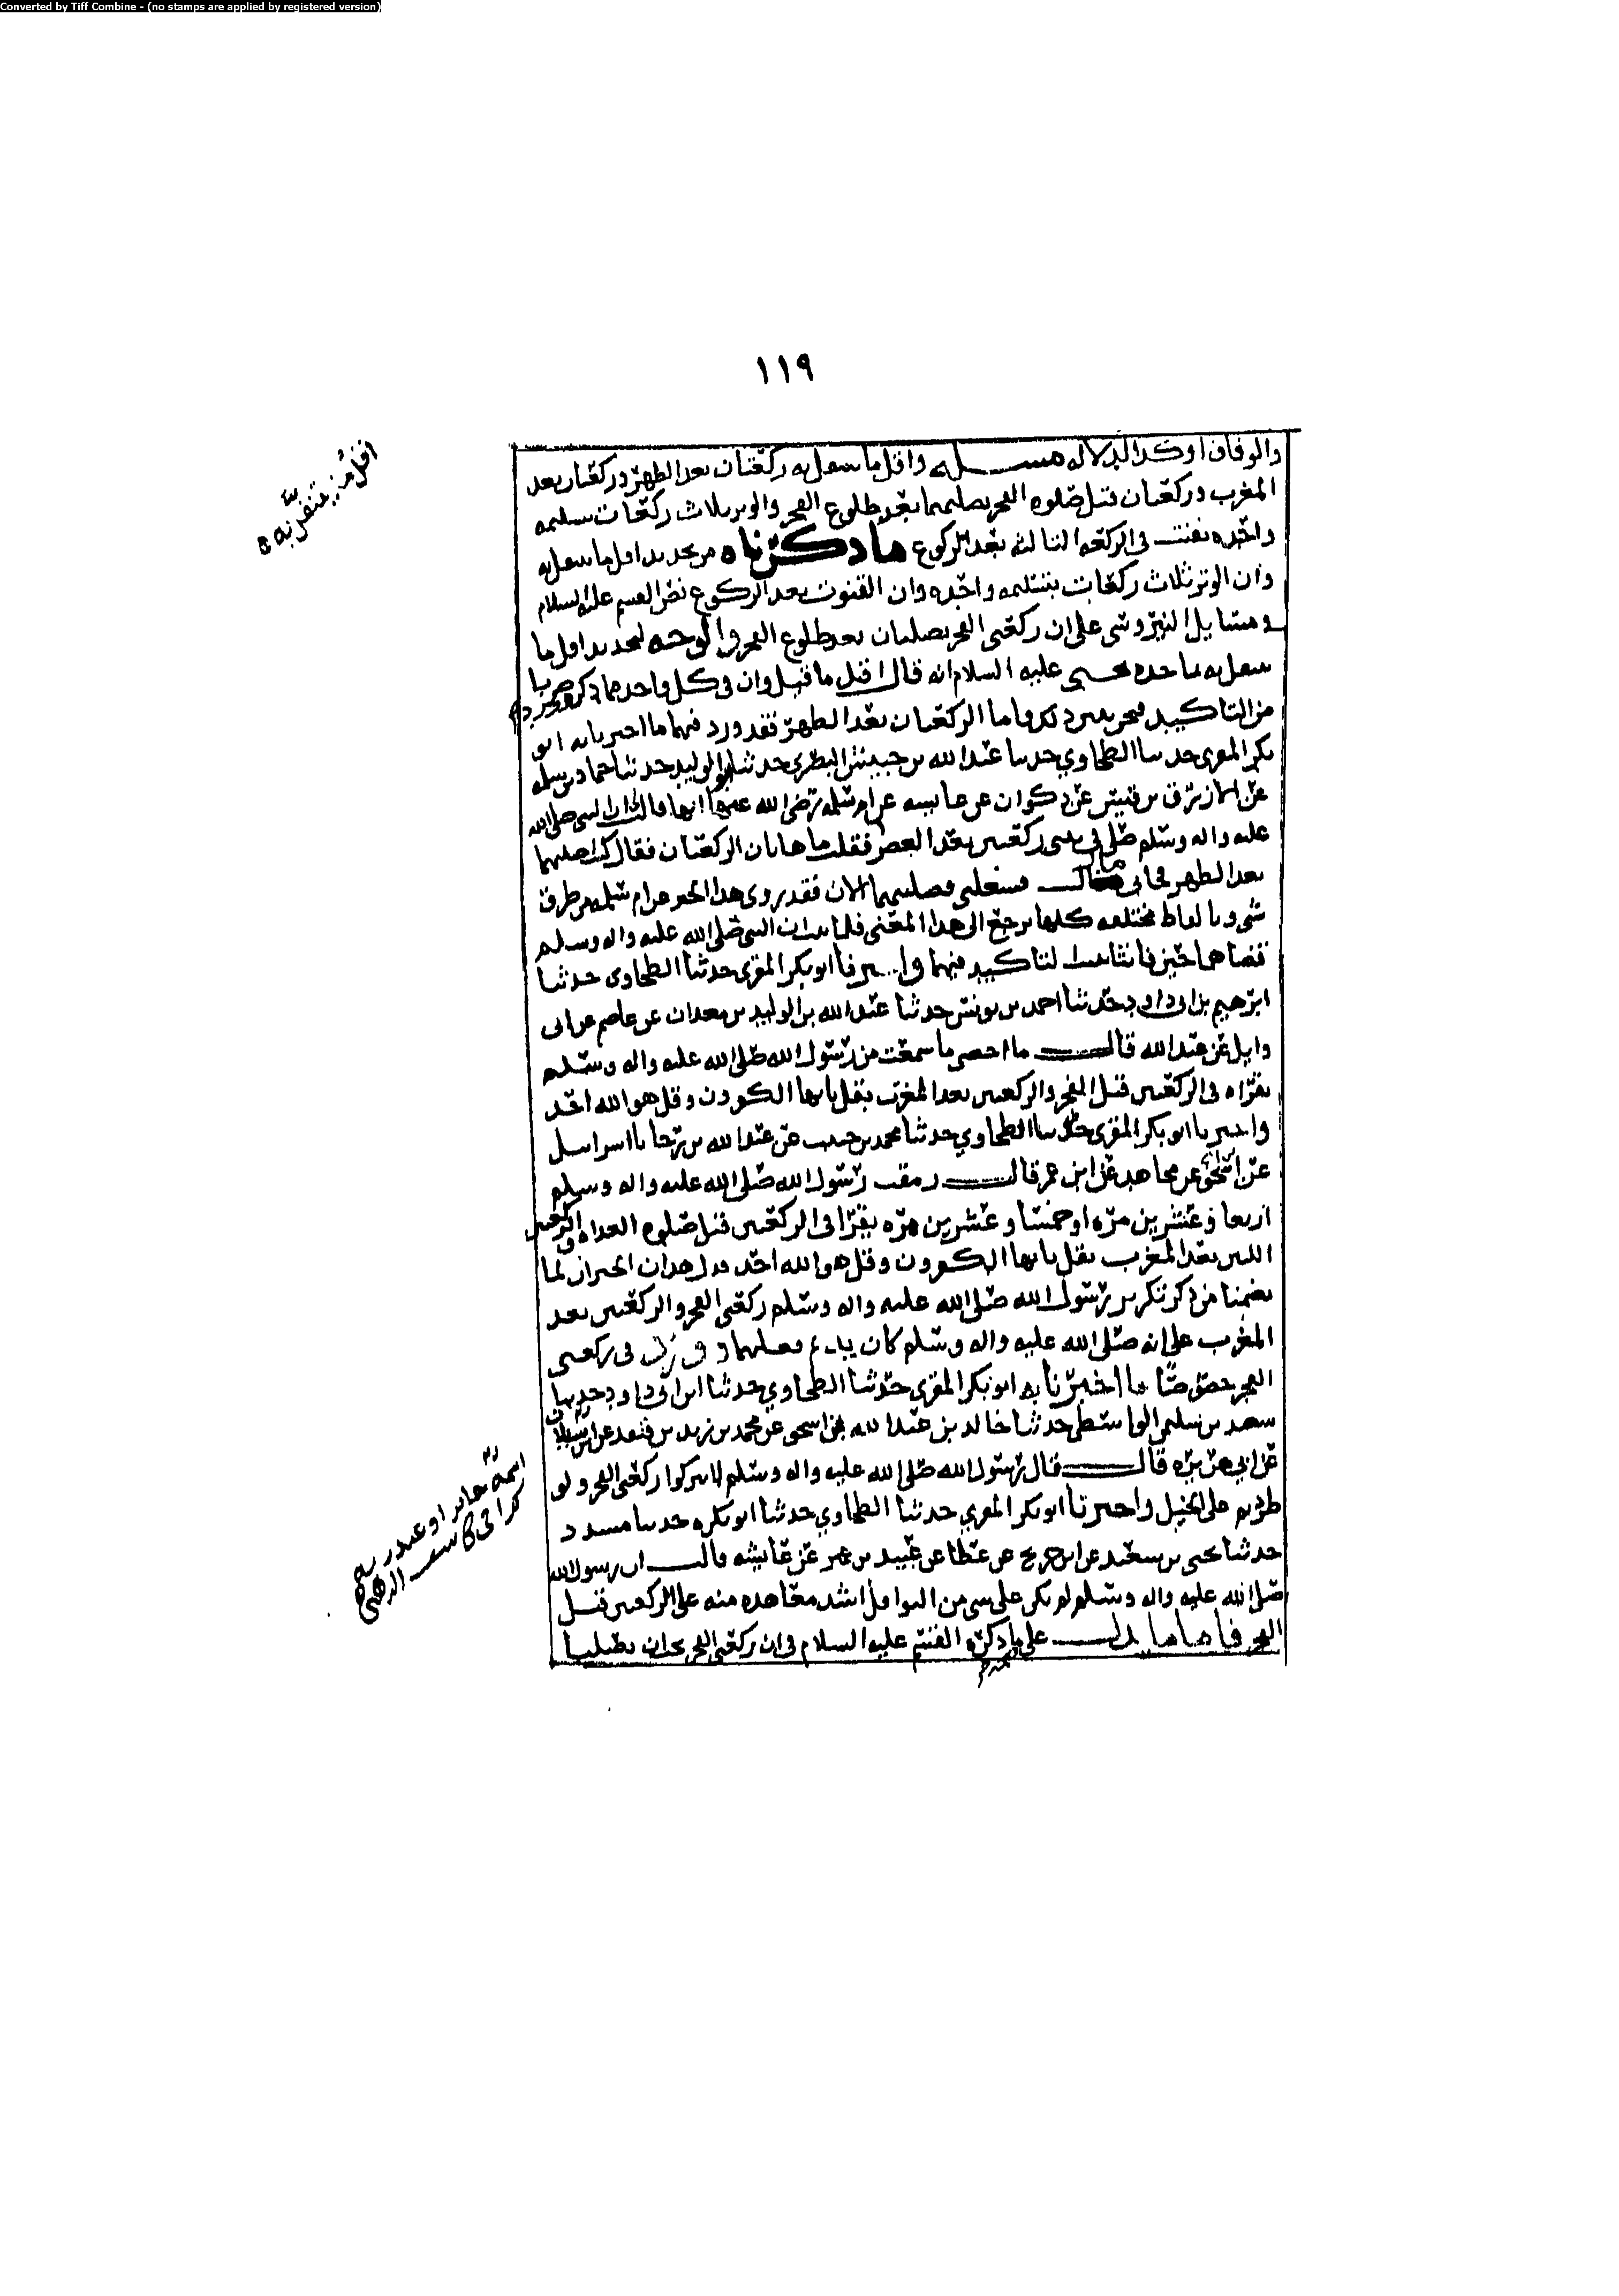 Converted by Tiff Combine - (no stamps are applied by registered version)
١١٩
والوفاق اوكد الدلاله مســـله واقل ما سفل به ركعتان بعد الظهر وركعتان بعد
المغرب وركعتان قبل صلوه الفجر يصليهما بعد طلوع الفجر والوتر ثلاث ركعات بتسليمه
واحده يقنت في الركعه الثالثه بعد الركوع ما ذكرناه من تحديد اقل ما سفل به
وان الوتر ثلاث ركعات بتسليمه واحده وان القنوت بعد الركوع نص القسم عليه السلام
ومسايل النيروسى على ان ركعتي الفجر يصليان بعد طلوع الفجر والوجه لتحديد اقل ما
سفل به ما حده يحيى عليه السلام انه قال اقل ما قيل وان في كل واحد مما ذكر ضربا
من التاكيد ونحن نورد ذكره اما الركعتان بعد الظهر فقد ورد فيهما ما اخبرنا به ابو
بكر المقري حدثنا الطحاوي حدثنا عبد الله بن حبيش البصري حدثنا ابو الوليد حدثنا حماد بن سلمه
عن الازرق بن قيس عن ذكوان عن عايشه عن ام سلمه رضى الله عنها انها قالت ان النبي صلى الله
عليه واله وسلم صلى في بيتي ركعتين بعد العصر فقلت ما هاتان الركعتان فقال كنت اصليهما
بعد الظهر فجاني مال فشغلني فصليتهما الان فقد روى هذا الخبر عن ام سلمه من طرق
شى وبالفاظ مختلفه كلها يرجع الى هذا المعنى فلما ثبت ان النبي صلى الله عليه واله وسلم
قضاهما حين فاتتا ثبت التاكيد فيهما واخبرنا ابو بكر المقري حدثنا الطحاوي حدثنا
ابرهيم بن ابي داود حدثنا احمد بن يونس حدثنا عبد الله بن الوليد بن معدان عن عاصم عن ابي
وايل عن عبد الله قال ما احصي ما سمعت من رسول الله صلى الله عليه واله وسلم
يقراه في الركعتين قبل الفجر والركعتين بعد المغرب بقل يايها الكافرون وقل هو الله احد
واخبرنا ابو بكر المقري حدثنا الطحاوي حدثنا محمد بن خزيمه عن عبد الله بن رجا نا اسرايل
عن ابي اسحق عن مجاهد عن ابن عمر قال رمقت رسول الله صلى الله عليه واله وسلم
اربعا وعشرين مره او خمسا وعشرين مره يقرا في الركعتين قبل صلوه الغداه وفي الركعتين
اللتين بعد المغرب بقل يايها الكافرون وقل هو الله احد فدل هذان الخبران لما
تضمنا من ذكر تكرير رسول الله صلى الله عليه واله وسلم ركعتي الفجر والركعتين بعد
المغرب على انه صلى الله عليه واله وسلم كان يداوم فعلهما وفي ركعتي
الفجر خصوصا ما اخبرنا به ابو بكر المقري حدثنا الطحاوي حدثنا ابن ابي داود حدثنا
سعيد بن سليمن الواسطي حدثنا خالد بن عبد الله عن اسحق عن محمد بن زيد بن قنفد عن ابن سيلان
عن ابي هريره قال قال رسول الله صلى الله عليه واله وسلم لا تتركوا ركعتي الفجر ولو
طردتم على الخيل واخبرنا ابو بكر المقري حدثنا الطحاوي حدثنا ابو بكره حدثنا مسدد
حدثنا يحيى بن سعيد عن ابن جريج عن عطا عن عبيد بن عمير عن عايشه قالت ان رسول الله
صلى الله عليه واله وسلم لم يكن على شي من النوافل اشد معاهده منه على الركعتين قبل
الفجر فاما ما يدل على ما ذكره القسم عليه السلام في ان ركعتي الفجر يجب ان يصليا